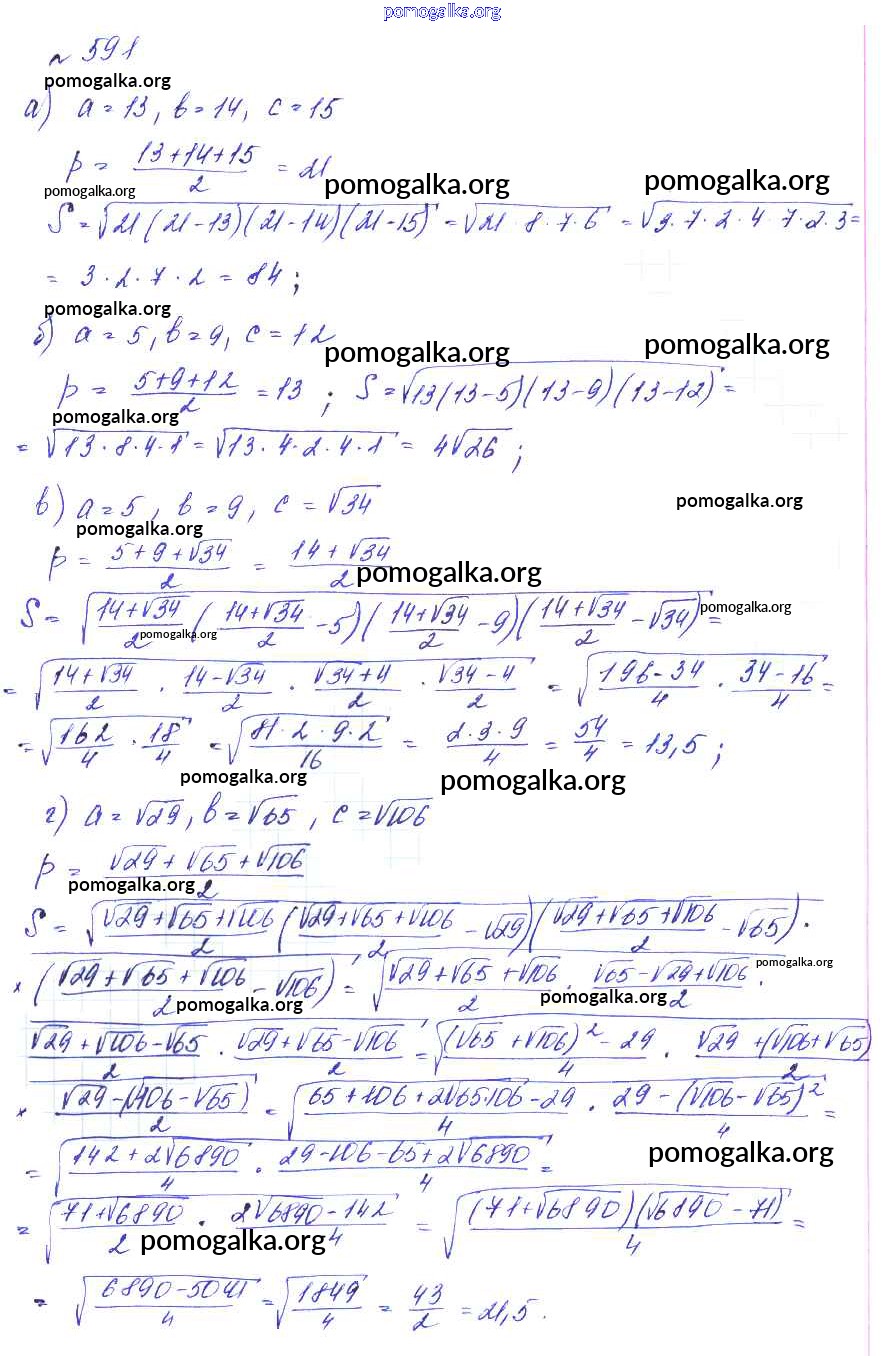 pomogalka.org
№ 591
pomogalka.org
а) a = 13, b = 14, c = 15
p = (13+14+15)/2 = 21
pomogalka.org pomogalka.org pomogalka.org
S = √(21(21-13)(21-14)(21-15)) = √(21·8·7·6) = √(3·7·2·4·7·2·3) =
= 3·2·7·2 = 84;
pomogalka.org
б) a = 5, b = 9, c = 12
pomogalka.org pomogalka.org
p = (5+9+12)/2 = 13; S = √(13(13-5)(13-9)(13-12)) =
pomogalka.org
= √(13·8·4·1) = √(13·4·2·4·1) = 4√26;
в) a = 5, b = 9, c = √34
pomogalka.org
pomogalka.org
p = (5+9+√34)/2 = (14+√34)/2
pomogalka.org
S = √((14+√34)/2 ((14+√34)/2 - 5)((14+√34)/2 - 9)((14+√34)/2 - √34)) =
pomogalka.org
pomogalka.org
= √((14+√34)/2 · (14-√34)/2 · (√34+4)/2 · (√34-4)/2) = √((196-34)/4 · (34-16)/4) =
= √(162/4 · 18/4) = √((81·2·9·2)/16) = (2·3·9)/4 = 54/4 = 13,5;
pomogalka.org pomogalka.org
г) a = √29, b = √65, c = √106
p = (√29+√65+√106)/2
pomogalka.org
S = √((√29+√65+√106)/2 ((√29+√65+√106)/2 - √29)((√29+√65+√106)/2 - √65) ·
× ((√29+√65+√106)/2 - √106)) = √((√29+√65+√106)/2 · (√65-√29+√106)/2 ·
pomogalka.org
pomogalka.org pomogalka.org
(√29+√106-√65)/2 · (√29+√65-√106)/2) = √(((√65+√106)²-29)/4 · (√29+(√106+√65))/2
× (√29-(√106-√65))/2) = √((65+106+2√65·106-29)/4 · (29-(√106-√65)²)/4) =
= √((142+2√6890)/4 · (29-106-65+2√6890)/4) =
pomogalka.org
= √((71+√6890)/2 · (2√6890-142)/4) = √(((71+√6890)(√6890-71))/4) =
pomogalka.org
= √((6890-5041)/4) = √(1849/4) = 43/2 = 21,5.